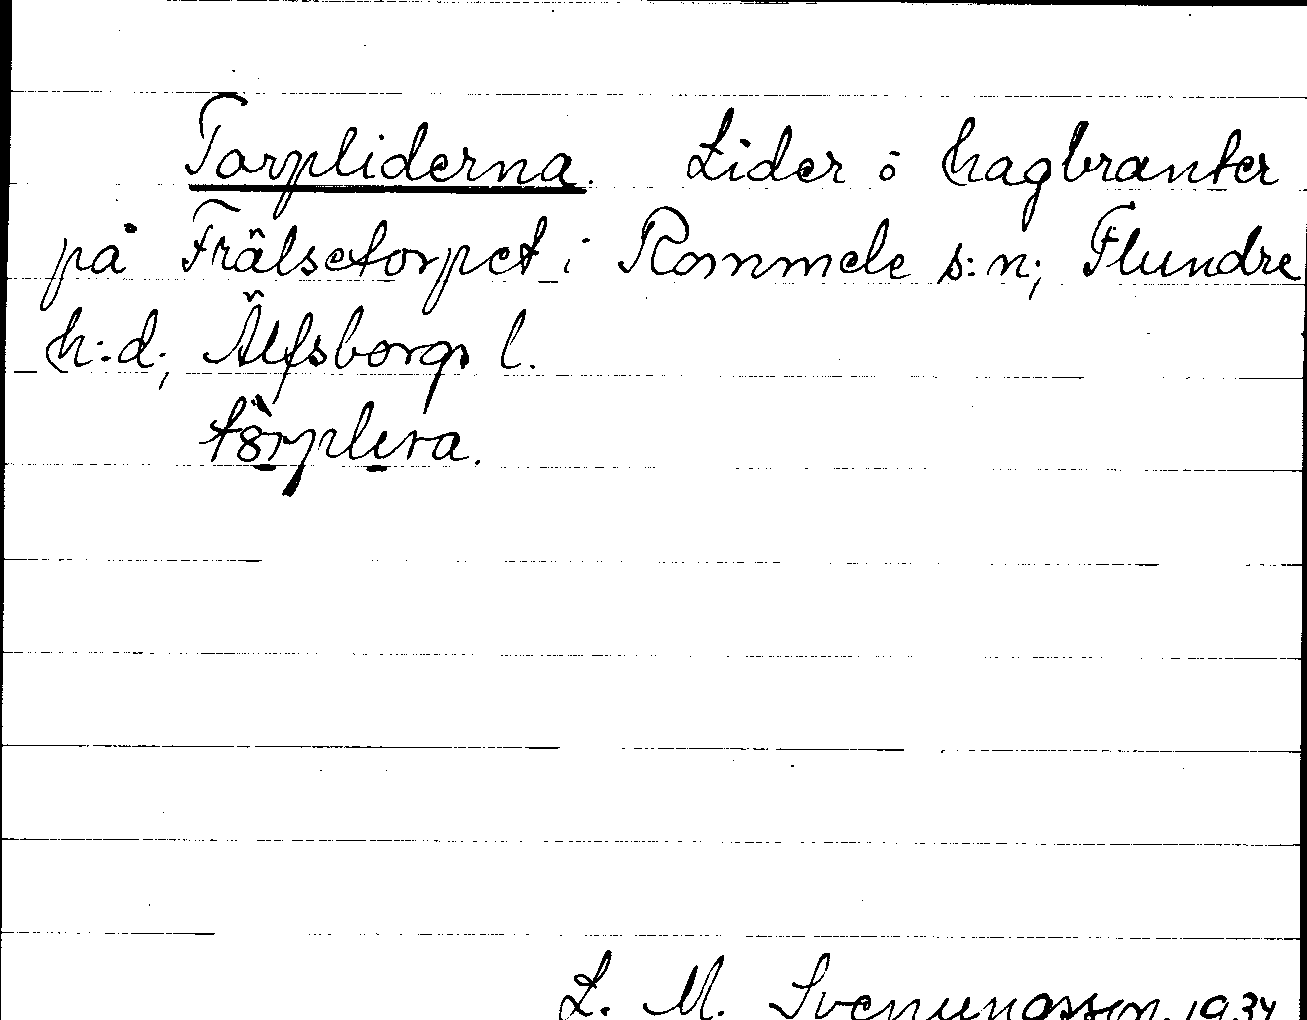 Torpliderna. Lider o hagbranter
på Frälsetorpet i Rommele s:n; Flundre
h:d; Älfsborgs l.
L. M. Svenungsson. 1934